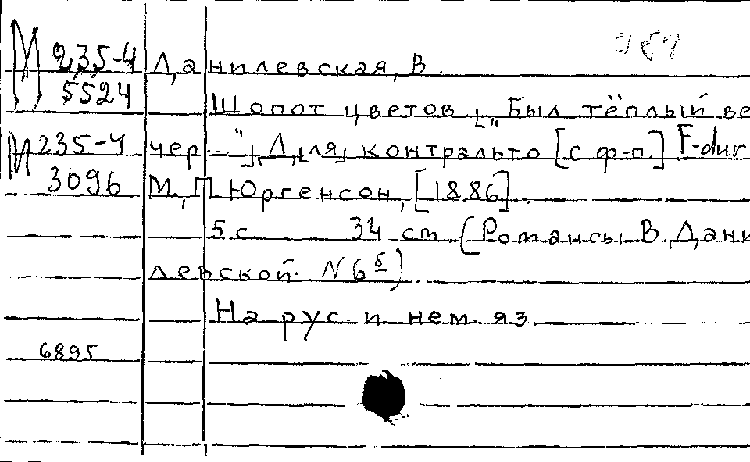 М 235-4 Данилевская, В.
5524 Шопот цветов. „Был тёплый ве
М 235-4 чер ...", Для контральто [с ф-п.] F-dur
3096 М., П. Юргенсон, [1886].
5 с. 34 см. (Романсы В. Дани
левской. N 6 б)
На рус. и нем. яз.
6895